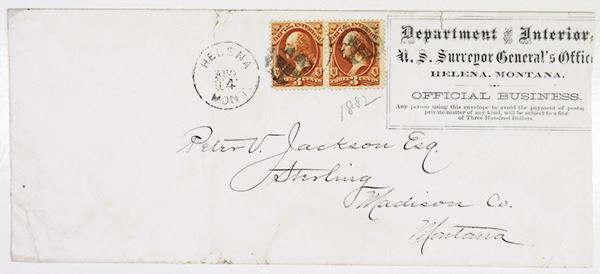 Department of the Interior,
U. S. Surveyor General's Office
HELENA, MONTANA.
OFFICIAL BUSINESS.
Any person using this envelope to avoid the payment of postag
private matter of any kind, will be subject to a fine
of Three Hundred Dollars.
HELENA
4
MONT.
3 CENTS
1882
Peter V. Jackson Esq.
Sterling
Madison Co.
Montana